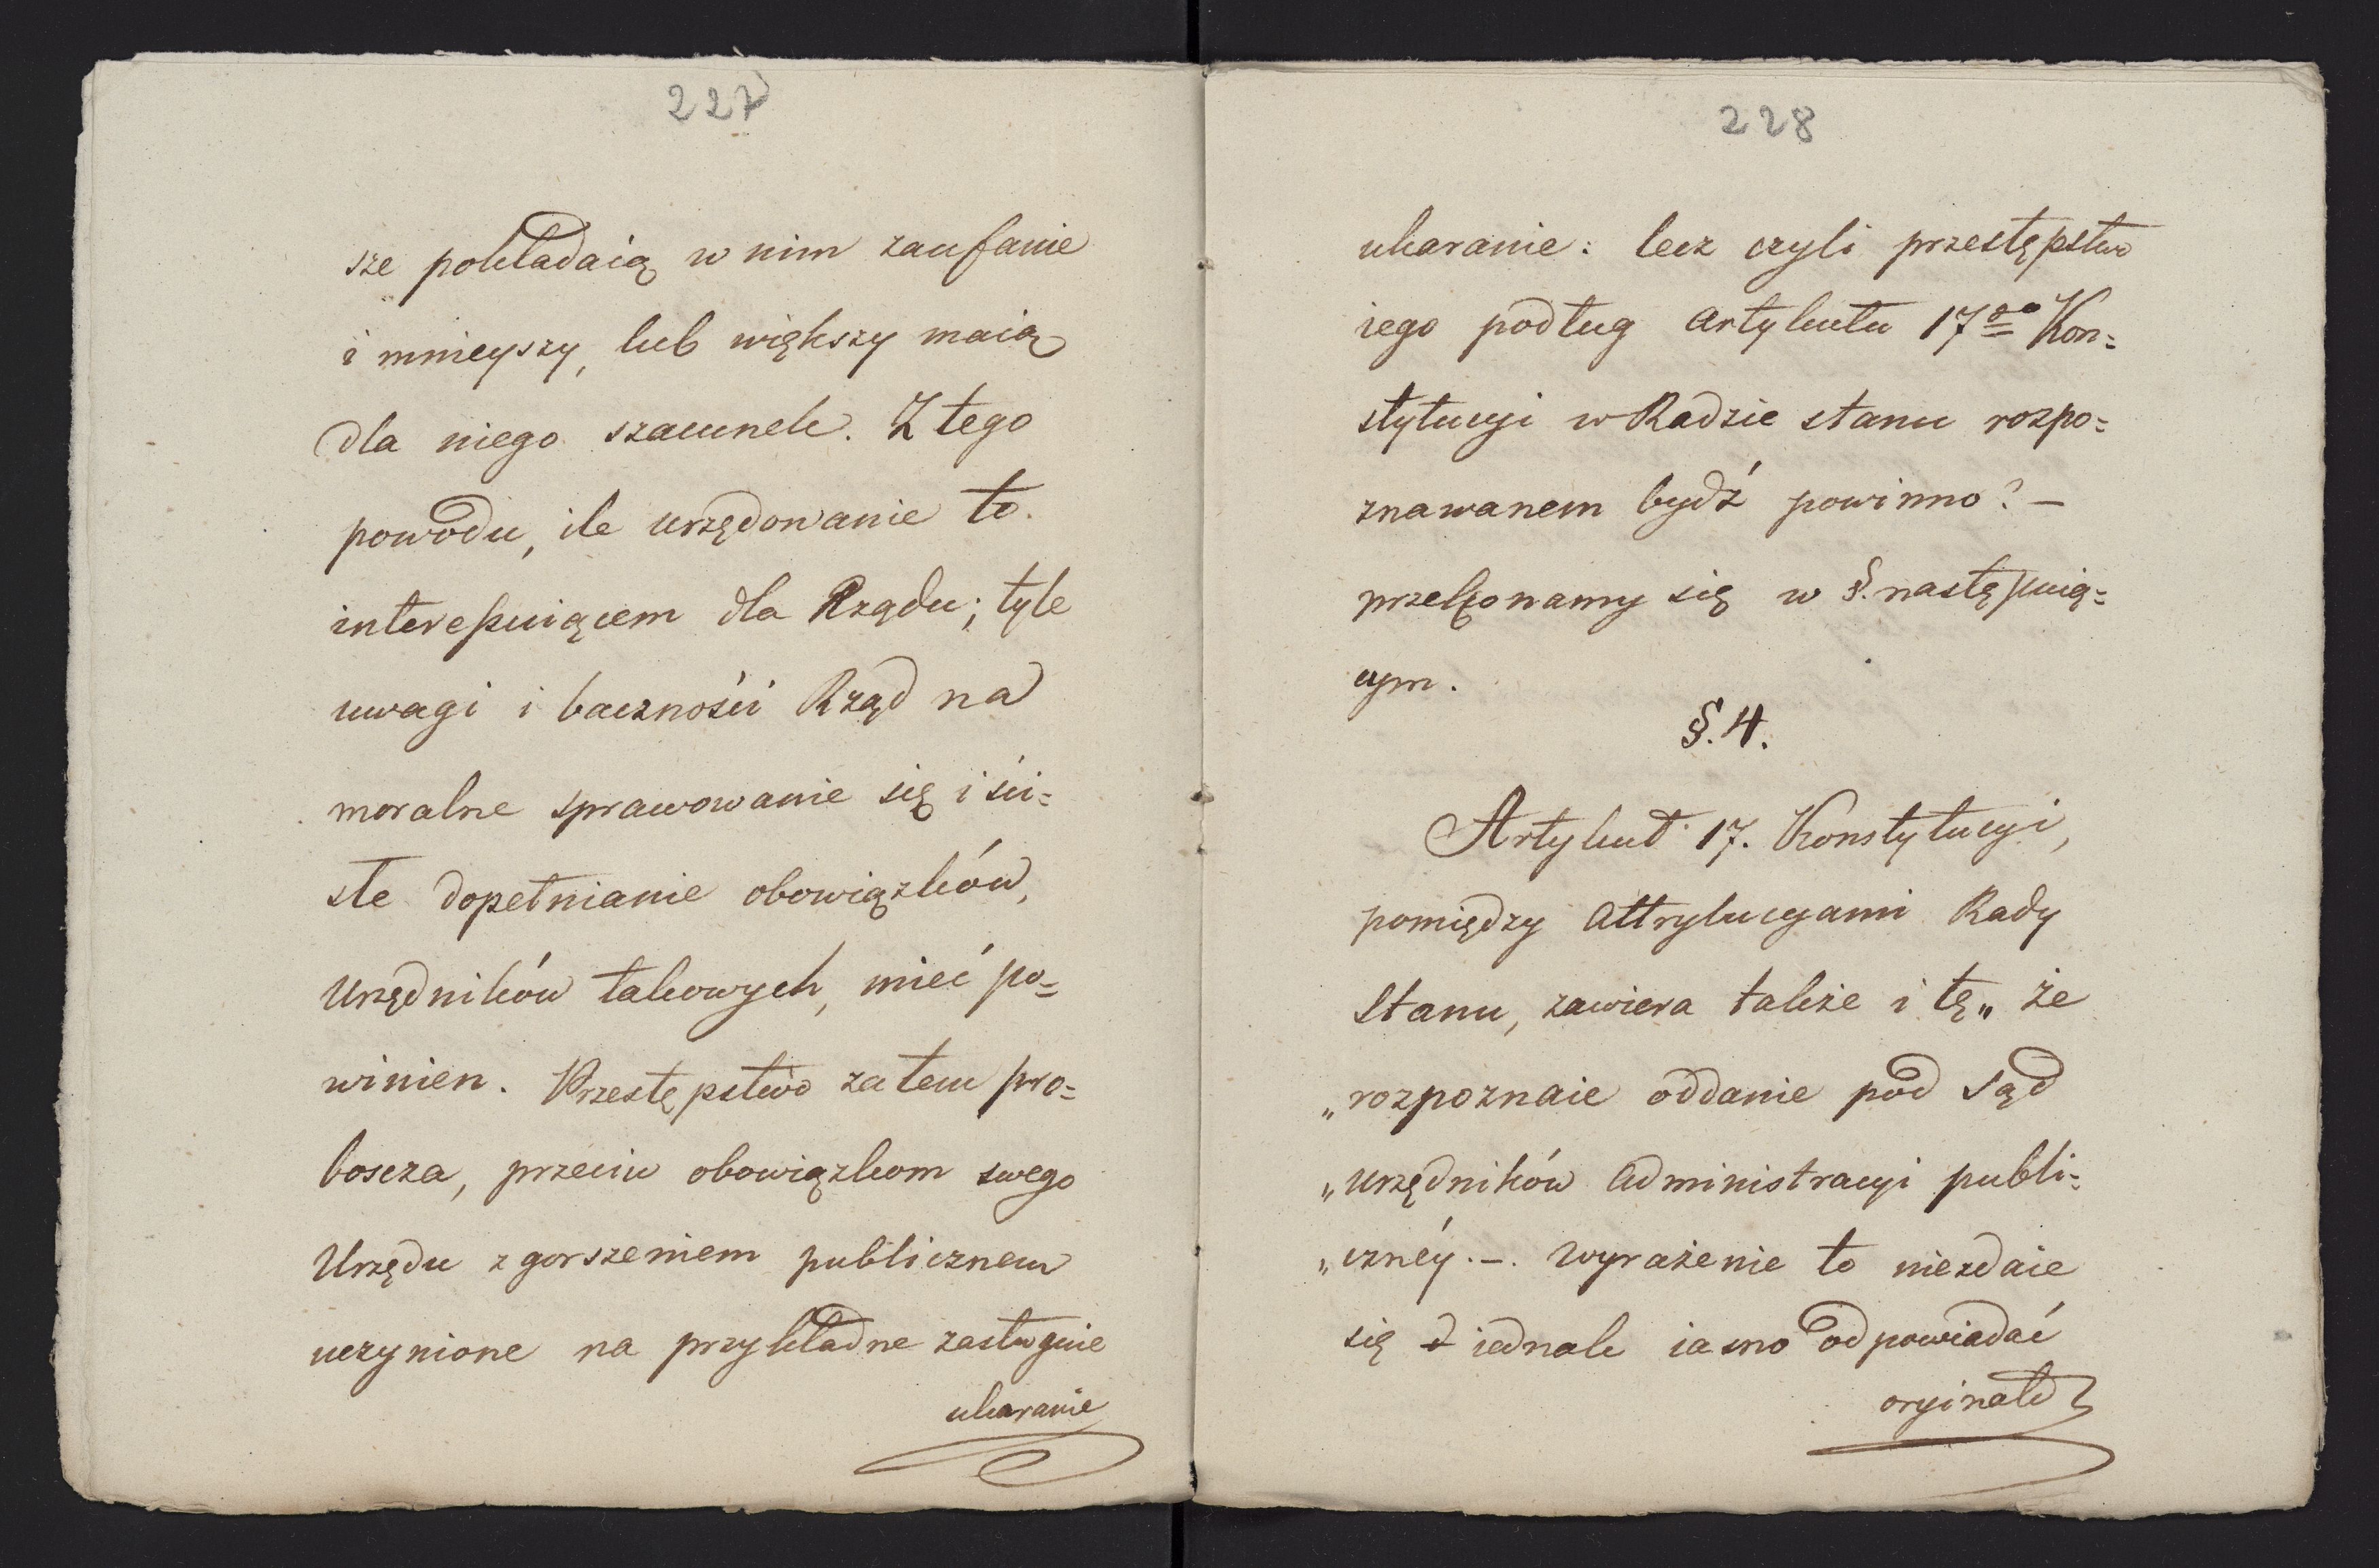 227
sze pokładaią w nim zaufanie
i mnieyszy, lub większy maią
dla niego szacunek. Z tego
powodu, ile urzędowanie to
interessuiącem dla Rządu; tyle
uwagi i baczności Rząd na
moralne sprawowanie się i ści=
słe dopełnianie obowiązków,
Urzędników takowych, mieć po=
winien. Przestępstwo zatem pro=
boscza, przeciw obowiązkom swego
Urzędu z gorszeniem publicznem
uczynione na przykładne zasługuie
ukaranie
228
ukaranie: lecz czyli przestępstwo
iego podług artykułu 17go Kon=
stytucyi w Radzie stanu rozpo=
znawanem bydź powinno? –
przekonamy się w §. następuią=
cym.
§. 4.
Artykuł 17. Konstytucyi,
pomiędzy attrybucyami Rady
Stanu, zawiera także i tę „ że
„rozpoznaie oddanie pod Sąd
„urzędników administracyi publi=
„cznéy. –. Wyrażenie to niezdaie
się iednak iasno odpowiadać
oryinało